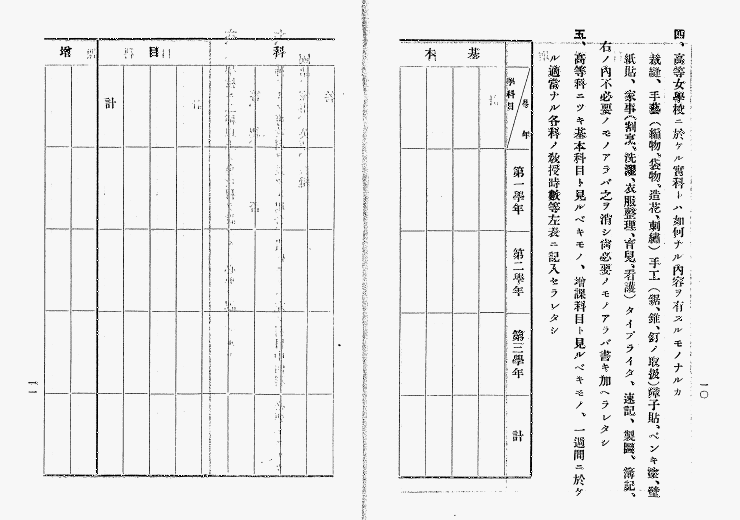 四、高等女學校ニ於ケル實科トハ如何ナル內容ヲ有スルモノナルカ
裁縫、手藝(編物、袋物、造花、刺繡)手工(鋸、錐、釘ノ取扱)障子貼、ペンキ塗、壁
紙貼、家事(割烹、洗濯、衣服整理、育兒、看護)タイプライター、速記、製圖、簿記、
右ノ內不必要ノモノアラバ之ヲ消シ尙必要ノモノアラバ書キ加ヘラレタシ
五、高等科ニツキ基本科目ト見ルベキモノ、增課科目ト見ルベキモノ、一週間ニ於ケ
ル適當ナル各科ノ敎授時數等左表ニ記入セラレタシ
學年
學科目
第一學年
第二學年
第三學年
計
基本
一〇
科目
計
增
一一